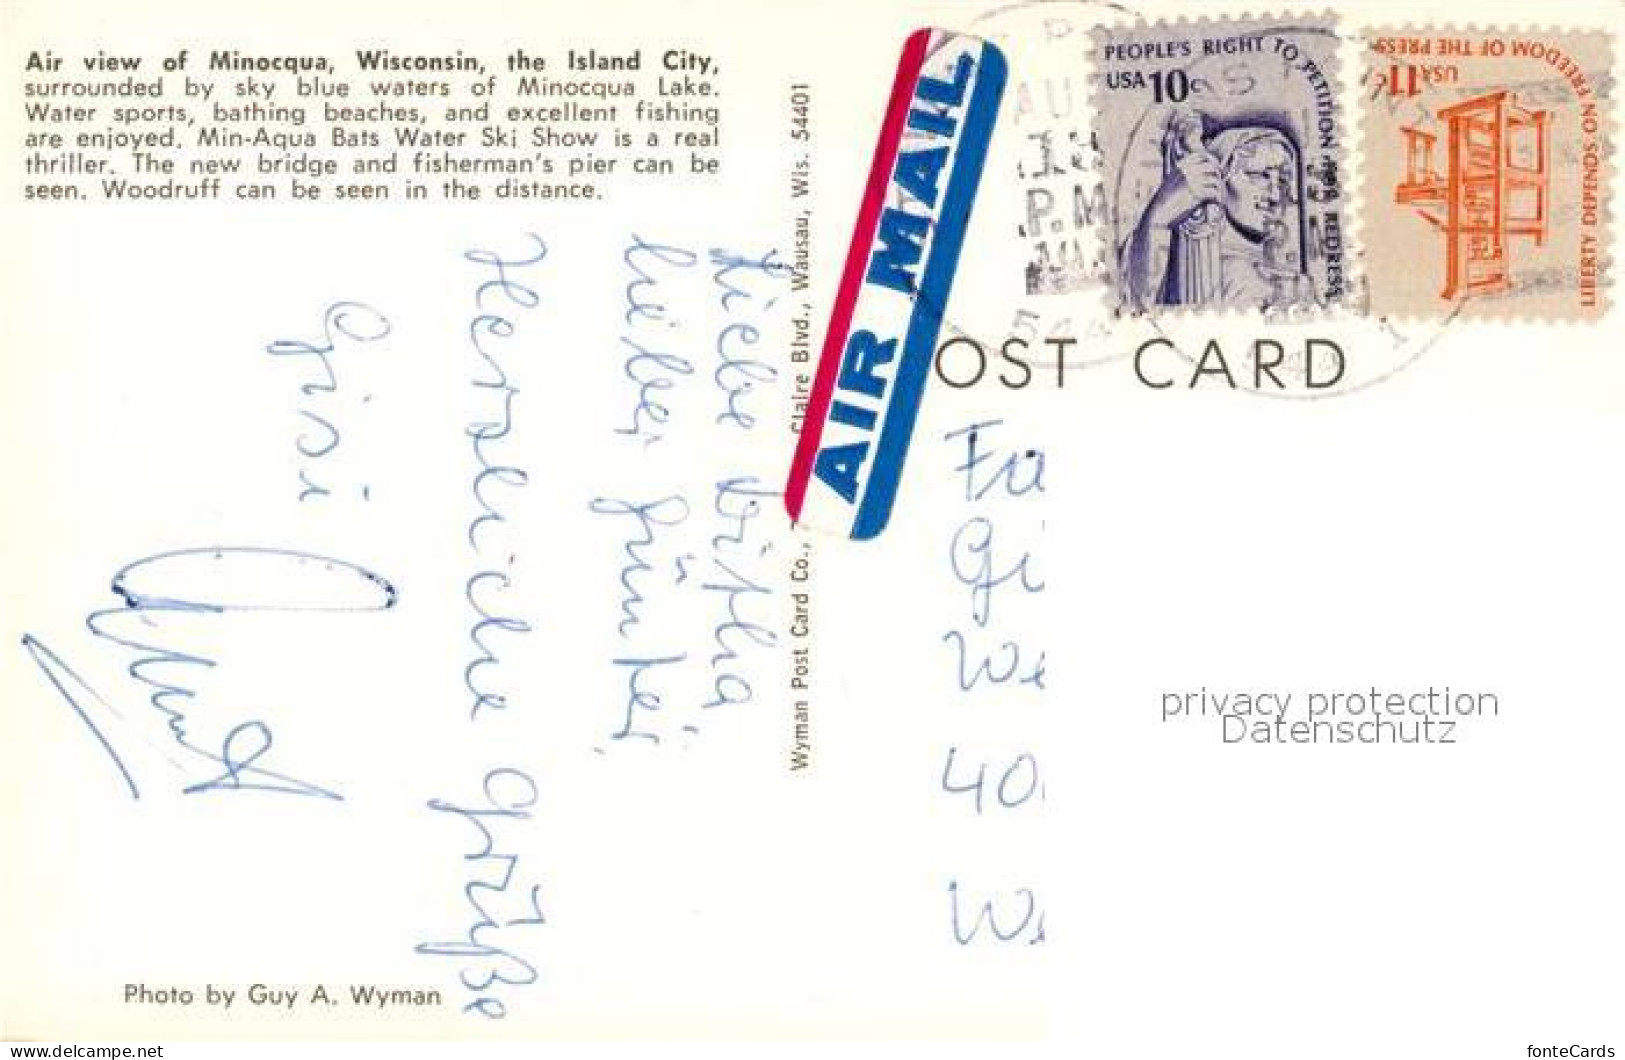 Air view of Minocqua, Wisconsin, the Island City,
surrounded by sky blue waters of Minocqua Lake.
Water sports, bathing beaches, and excellent fishing
are enjoyed. Min-Aqua Bats Water Ski Show is a real
thriller. The new bridge and fisherman's pier can be
seen. Woodruff can be seen in the distance.
Liebe
lieber Günter,
Herzliche Grüße
Gisi
Photo by Guy A. Wyman
Wyman Post Card Co., Claire Blvd., Wausau, Wis. 54401
AIR MAIL
PEOPLE'S RIGHT TO PETITION FOR REDRESS
USA 10c
LIBERTY DEPENDS ON FREEDOM OF THE PRESS
USA 11c
P.M.
OST CARD
Fa
Gü
We
40
We
privacy protection
Datenschutz
www.delcampe.net
fonteCards